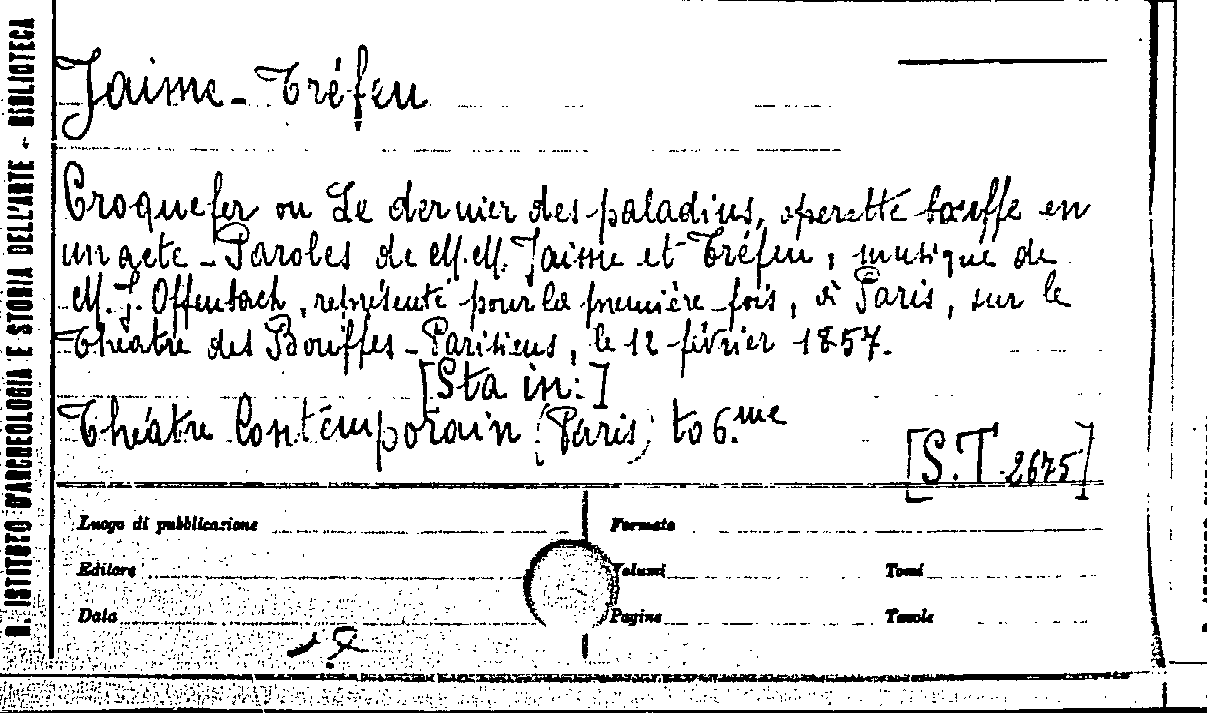 R. ISTITUTO D'ARCHEOLOGIA E STORIA DELL'ARTE - BIBLIOTECA
Jaime - Tréfeu
Croquefer ou Le dernier des paladins, operette bouffe en
un acte - Paroles de M.M. Jaime et Tréfeu, musique de
M. J. Offenbach, représenté pour la première fois, à Paris, sur le
Théatre des Bouffes-Parisiens, le 12 février 1857.
[Sta in:]
Théatre Contemporain (Paris) to 6.me
[S.T. 2675]
Luogo di pubblicazione Formato
Editore Volumi Tomi
Data Pagine Tavole